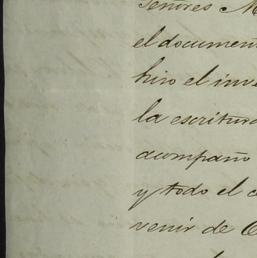 Señores M
el documen
hizo el inv
la escritura
acompaño
y todo el c
venir de C